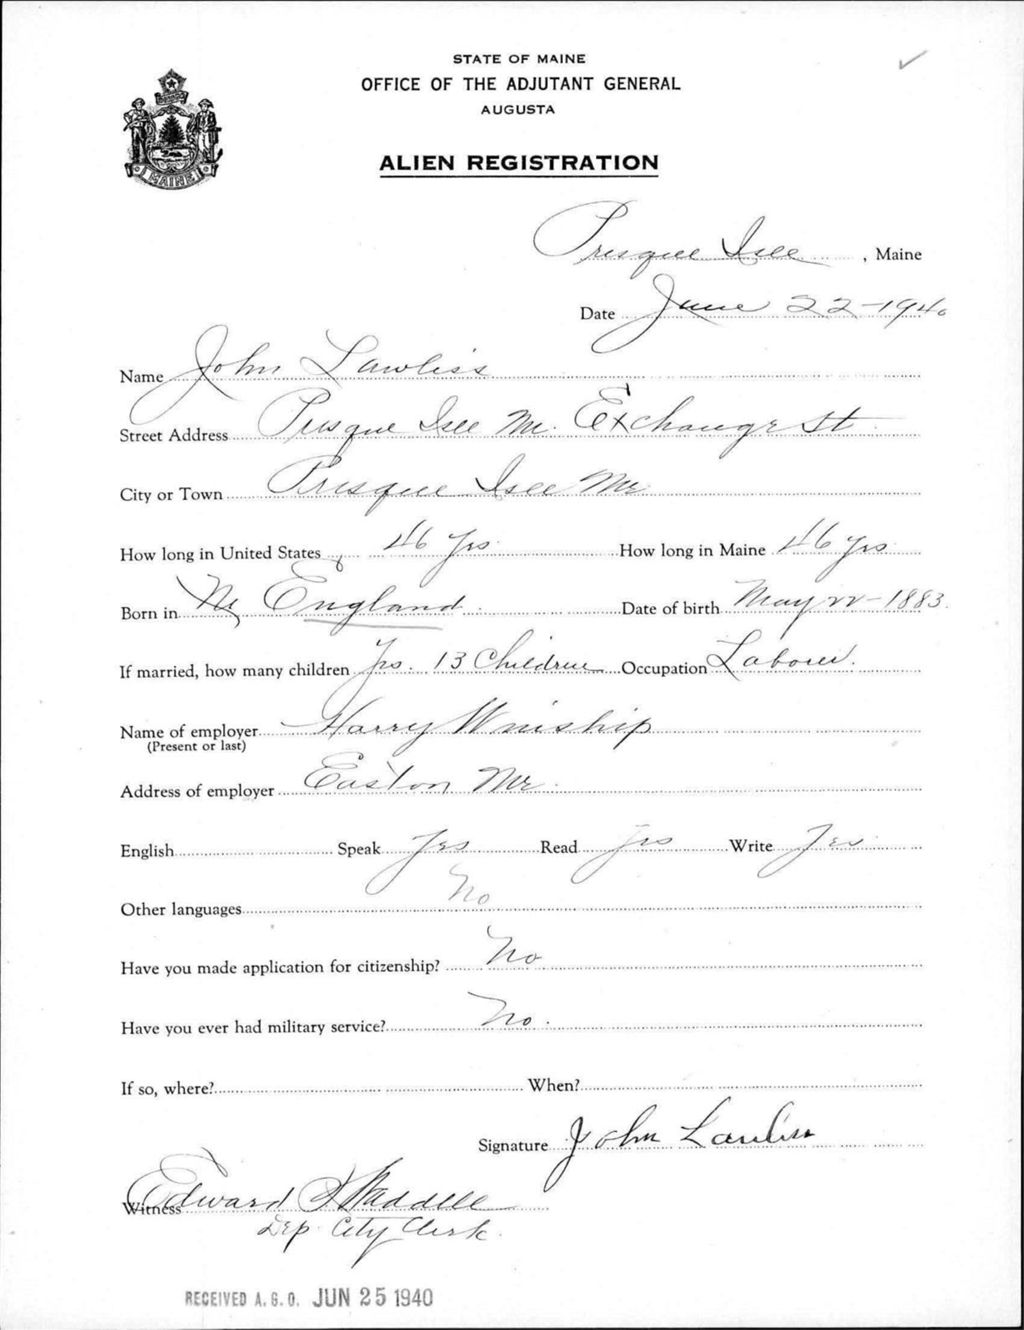 STATE OF MAINE
OFFICE OF THE ADJUTANT GENERAL
AUGUSTA
ALIEN REGISTRATION
MAINE
Presque Isle, Maine
Date June 22-1940
Name John Lawliss
Street Address Presque Isle Me. Exchange St.
City or Town Presque Isle Me
How long in United States 46 yrs. How long in Maine 46 yrs
Born in England Date of birth May 22-1883.
If married, how many children Yes. 13 Children Occupation Laborer.
Name of employer Harry Winship
(Present or last)
Address of employer Easton Me.
English Speak Yes Read Yes Write Yes
Other languages No
Have you made application for citizenship? No
Have you ever had military service? No.
If so, where? When?
Signature John Lawliss
Witness Edward Waddell
Dep. City Clerk.
RECEIVED A.G.O. JUN 25 1940